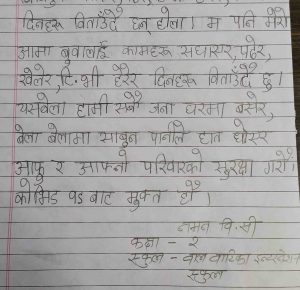 दिनहरू विताउँदै छन् होला। म पनि मेरो
आमा बुवालाई कामहरू सघाएर, पढेर,
खेलेर, टि.भी हेरेर दिनहरू विताउँदै छु।
यसबेला हामी सबै जना घरमा बसेर,
बेला बेलामा साबुन पानीले हात धोएर
आफू र आफ्नो परिवारको सुरक्षा गरौं।
कोभिड १९ बाट मुक्त हौं।
नमन वि.सी
कक्षा - २
स्कुल - बाल बाटिका इन्टरनेशनल
स्कुल